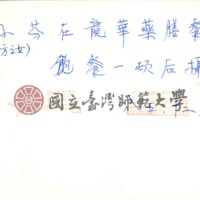 小芬在龍華藥膳餐
(方女)
飽餐一頓后攝
國立臺灣師範大學